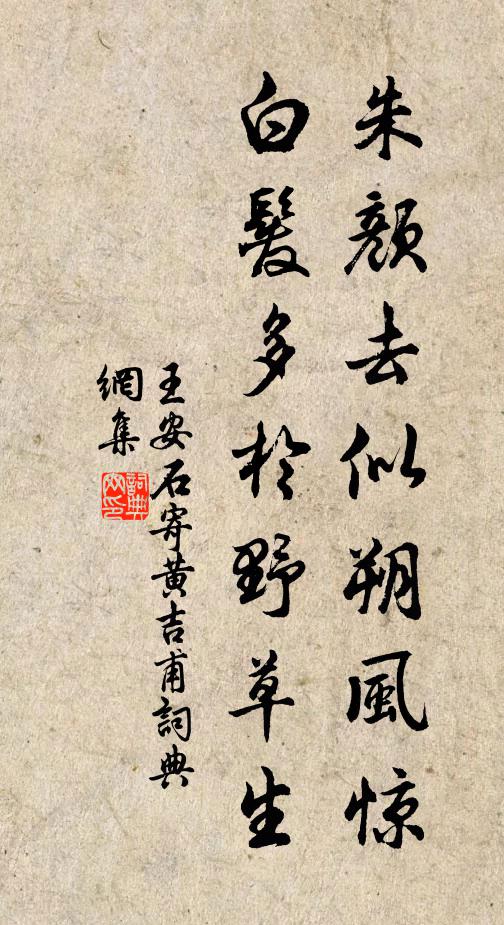 朱顏去似朔風惊
白髮多於野草生
王安石寄黄吉甫詞典
網集
詞典网印